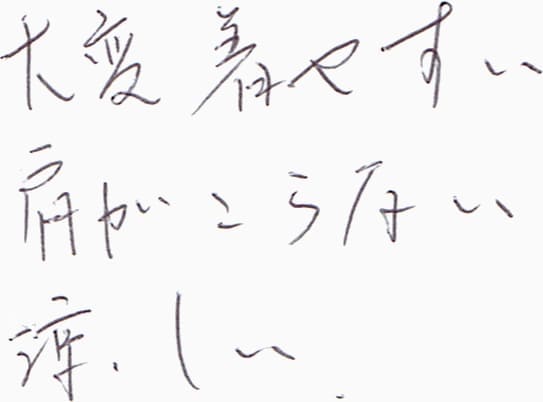 大変着やすい
肩がこらない
涼しい